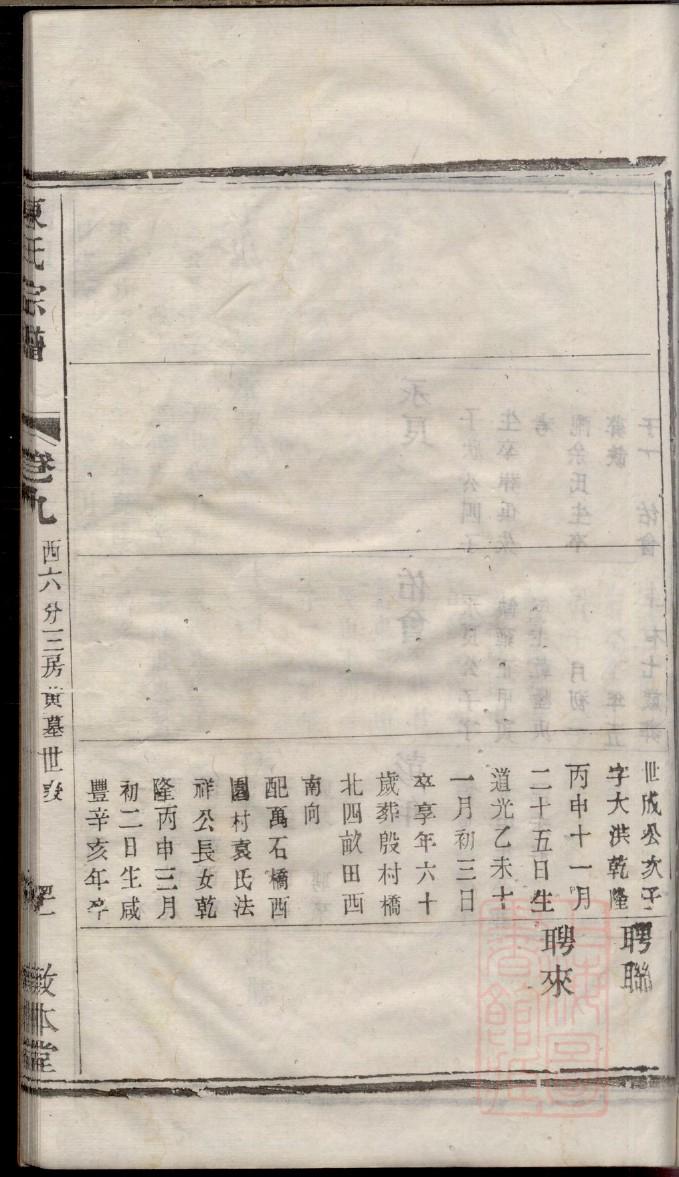 世成公次子
字大洪乾隆
丙申十一月
二十五日生
道光乙未十
一月初三日
卒享年六十
歲葬殷村橋
北四畝田西
南向
配萬石橋西
園村袁氏法
祥公長女乾
隆丙申三月
初二日生咸
豐辛亥年卒
聘聯
聘來
陳氏宗譜
卷九
西六分三房黃墓世表
敦本堂